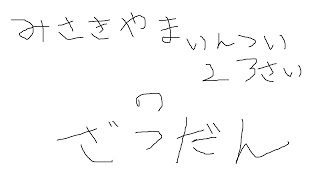 みさきやまいんつい
23さい
の
ざつだん